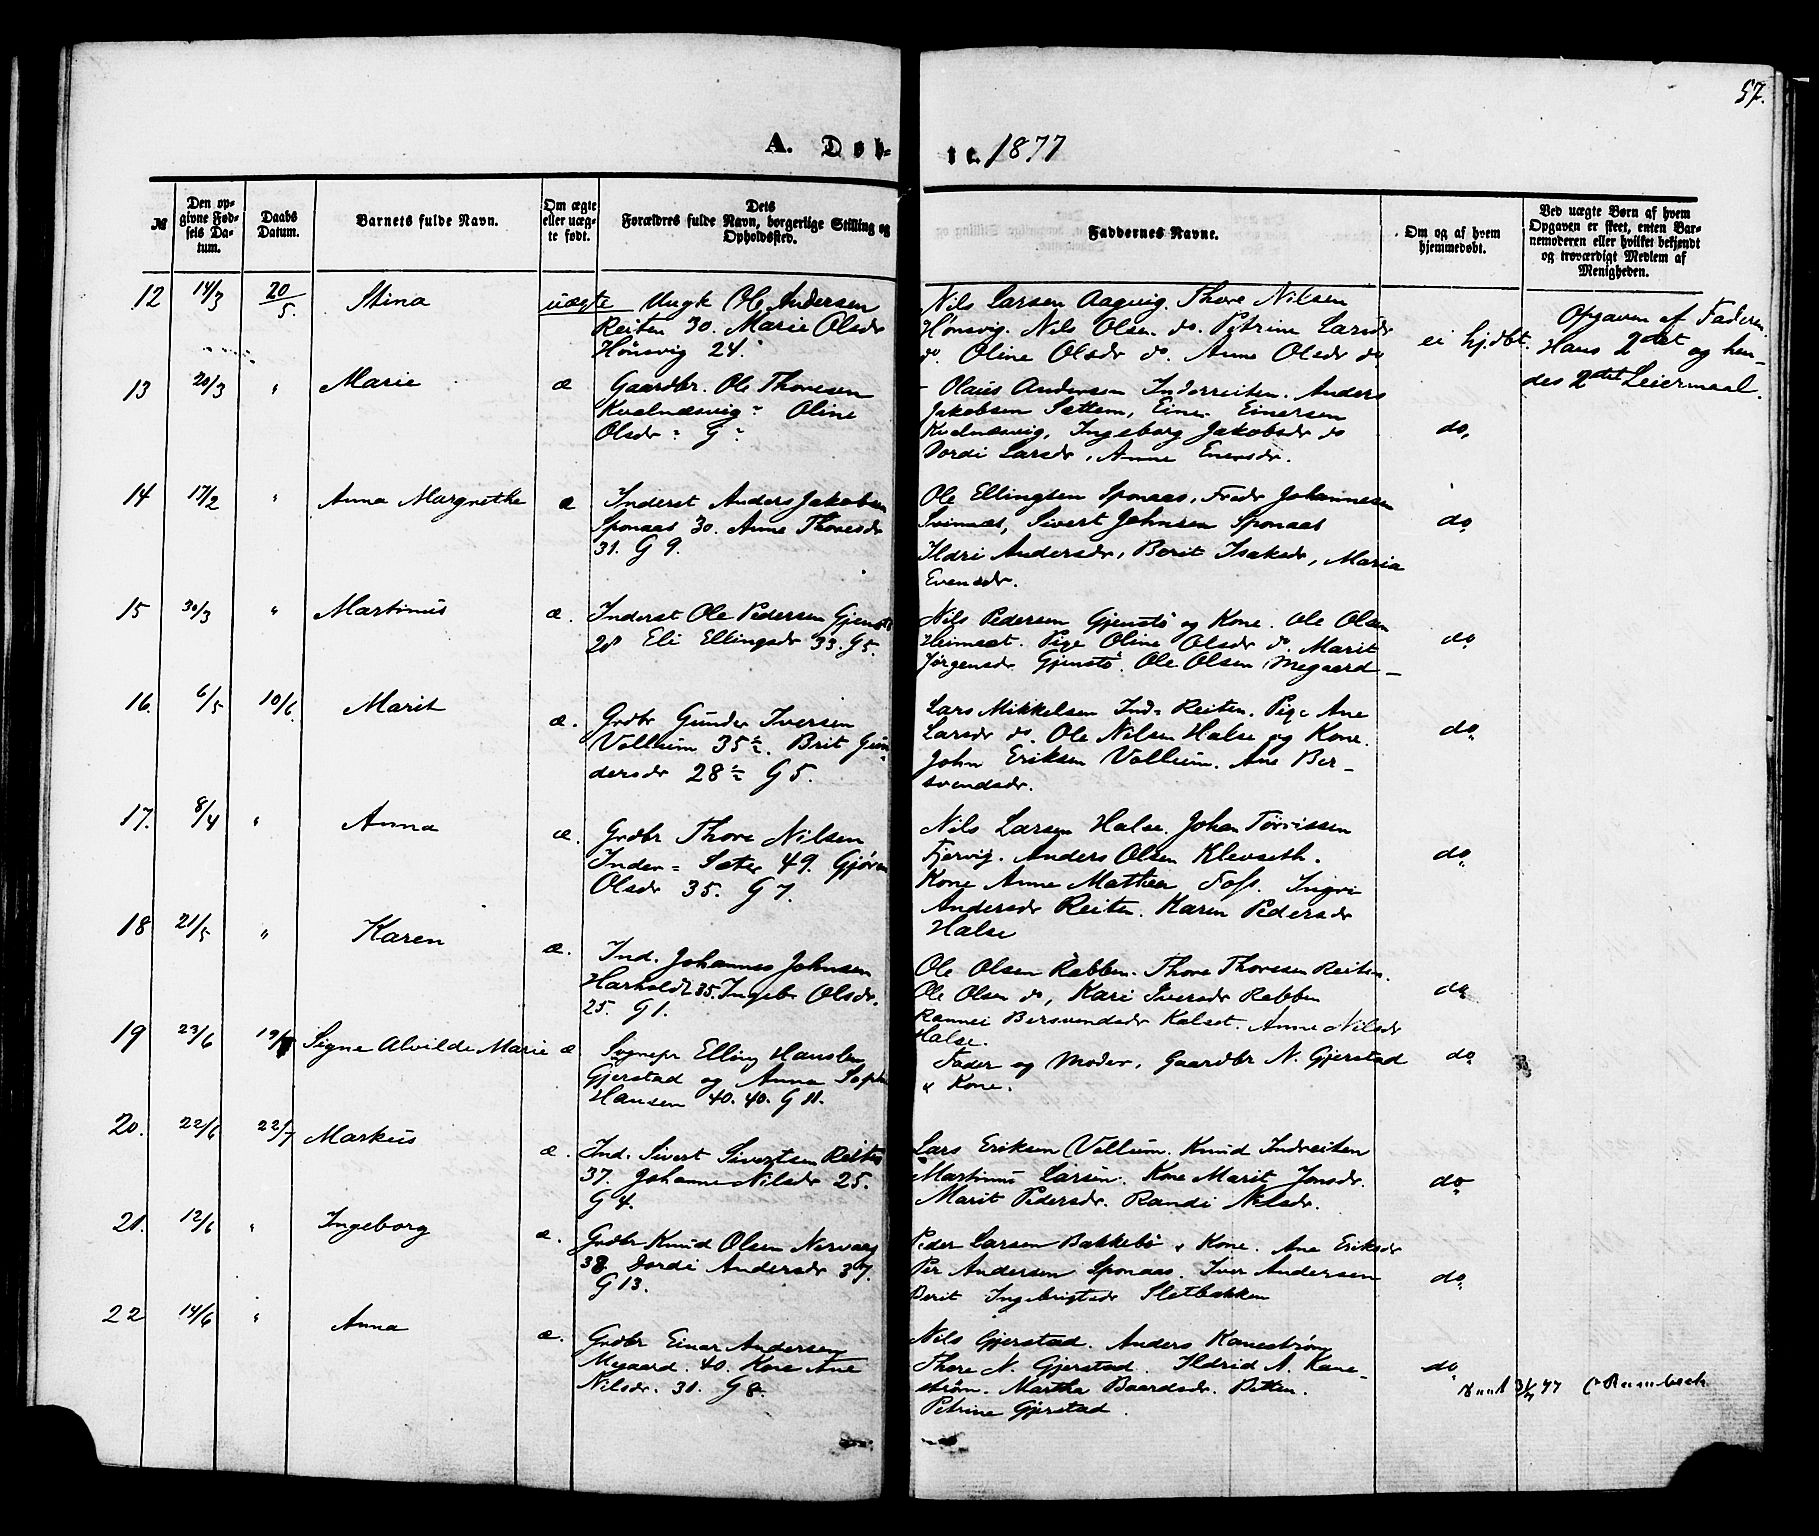 57.
A. Døb-
te. 1877
№
Den op-
givne Fød-
sels Da-
tum.
Daabs
Datum.
Barnets fulde Navn.
Om ægte
eller uæg-
te født.
Dets
Forældres fulde Navn, borgerlige Stilling og
Opholdssted.
Faddernes Navne.
Om og af hvem
hjemmedøbt.
Ved uægte Børn af hvem
Opgaven er skeet, enten Bar-
nemoderen eller hvilket bekjendt
og troværdigt Medlem af
Menigheden.
12 14/3 20/5. Stina uægte Ungk Ole Andersen
Reiten 30. Marie Olsdr
Hønsvig 24.
Nils Larsen Aagvig. Thore Nilsen
Hønsvig. Nils Olsen do. Petrine Larsdr
do. Oline Olsdr do. Anne Olsdr do
ei hjdbt.
Opgaven af Faderen.
Hans 2det og hen-
des 2det Leiermaal.
13 20/3 " Marie æ Gaardbr. Ole Thoresen
Kvalnæsvig Oline
Olsdr G
- Olaus Andersen Inderreiten. Anders
Jakobsen Sættem, Einer Einersen
Kvalnæsvig, Ingeborg Jakobsdr do
Dordi Larsdr, Anne Enersdr.
do,
14 17/2 " Anna Margrethe æ Inderst Anders Jakobsen
Sponaas 30. Anne Thoresdr
31. G 9.
Ole Ellingsen Sponaas, Fredr Johannesen
Svinnæs, Sivert Johnsen Sponaas
Ildri Andersdr, Berit Isaksdr, Maria
Evensdr.
do
15 30/3 " Martinus æ. Inderst Ole Pedersen Gjenstø
28 Eli Ellingsdr 33. G 5.
Nils Pedersen Gjenstø og Kone. Ole Olsen
Heimsæt. Pige Oline Olsdr do. Marit
Jørgensdr. Gjenstø. Ole Olsen Megaard -
do
16. 6/5 10/6. Marit æ. Grdbr Gunder Iversen
Vollum 35 ½. Brit Gun-
dersdr 28 ½ G 5.
Lars Mikkelsen Ind. Reiten. Pige Ane
Larsdr do. Ole Nilsen Halse og Kone.
John Eriksen Vollum. Ane Ber-
svendsdr.
do.
17. 8/4 " Anna æ. Grdbr Thore Nilsen
Inder-Sæter 49. Gjøren
Olsdr 35. G 7.
Nils Larsen Halse. Johan Tørrissen
Fjervig. Anders Olsen Klevseth.
Kone Anne Mathea Foss. Ingri
Andersdr Reiten. Karen Pedersdr
Halse
do.
18 21/5 " Karen æ. Ind. Johannes Johnsen
Harholdt 35. Ingebr Olsdr.
25. G 1.
Ole Olsen Rabben. Thore Thoresen Reiten.
Ole Olsen do, Kari Iversdr Rabben
Rannei Bersvendsdr Kalset. Anne Nilsdr
Halse.
do
19 23/6 Signe Alvilde Marie æ Sognepr Elling Hansen
Gjerstad og Anna Soph
Hansen 40. 40. G 11.
Fader og Moder, Gaardbr N. Gjerstad
" Kone.
do
20. 22/6 22/7 Markus æ. Ind. Sivert Sivertsen Reiten
37. Johanne Nilsdr 25.
G 4.
Lars Eriksen Vollum. Knud Indreiten
Martinus Larsen. Kone Marit Jonsdr.
Marit Pedersdr. Randi Nilsdr.
do.
21. 12/6 " Ingeborg æ. Grdbr Knud Olsen Nervaag
38 Dordi Andersdr 37.
G 13.
Peder Larsen Bakkebø & Kone. Ane Eriksdr
Per Andersen Sponaas. Iver Andersen
Berit Ingebrigtsdr Sletbakken
do.
22 14/6 " Anna æ. Grdbr Einar Andersen
Megaard. 40. Kone Ane
Nilsdr. 31. G 8.
Nils Gjerstad. Anders Kanestrøm
Thore N. Gjerstad. Ildrid A. Kane-
strøm. Martha Baardsdr. Betten.
Petrine Gjerstad.
do